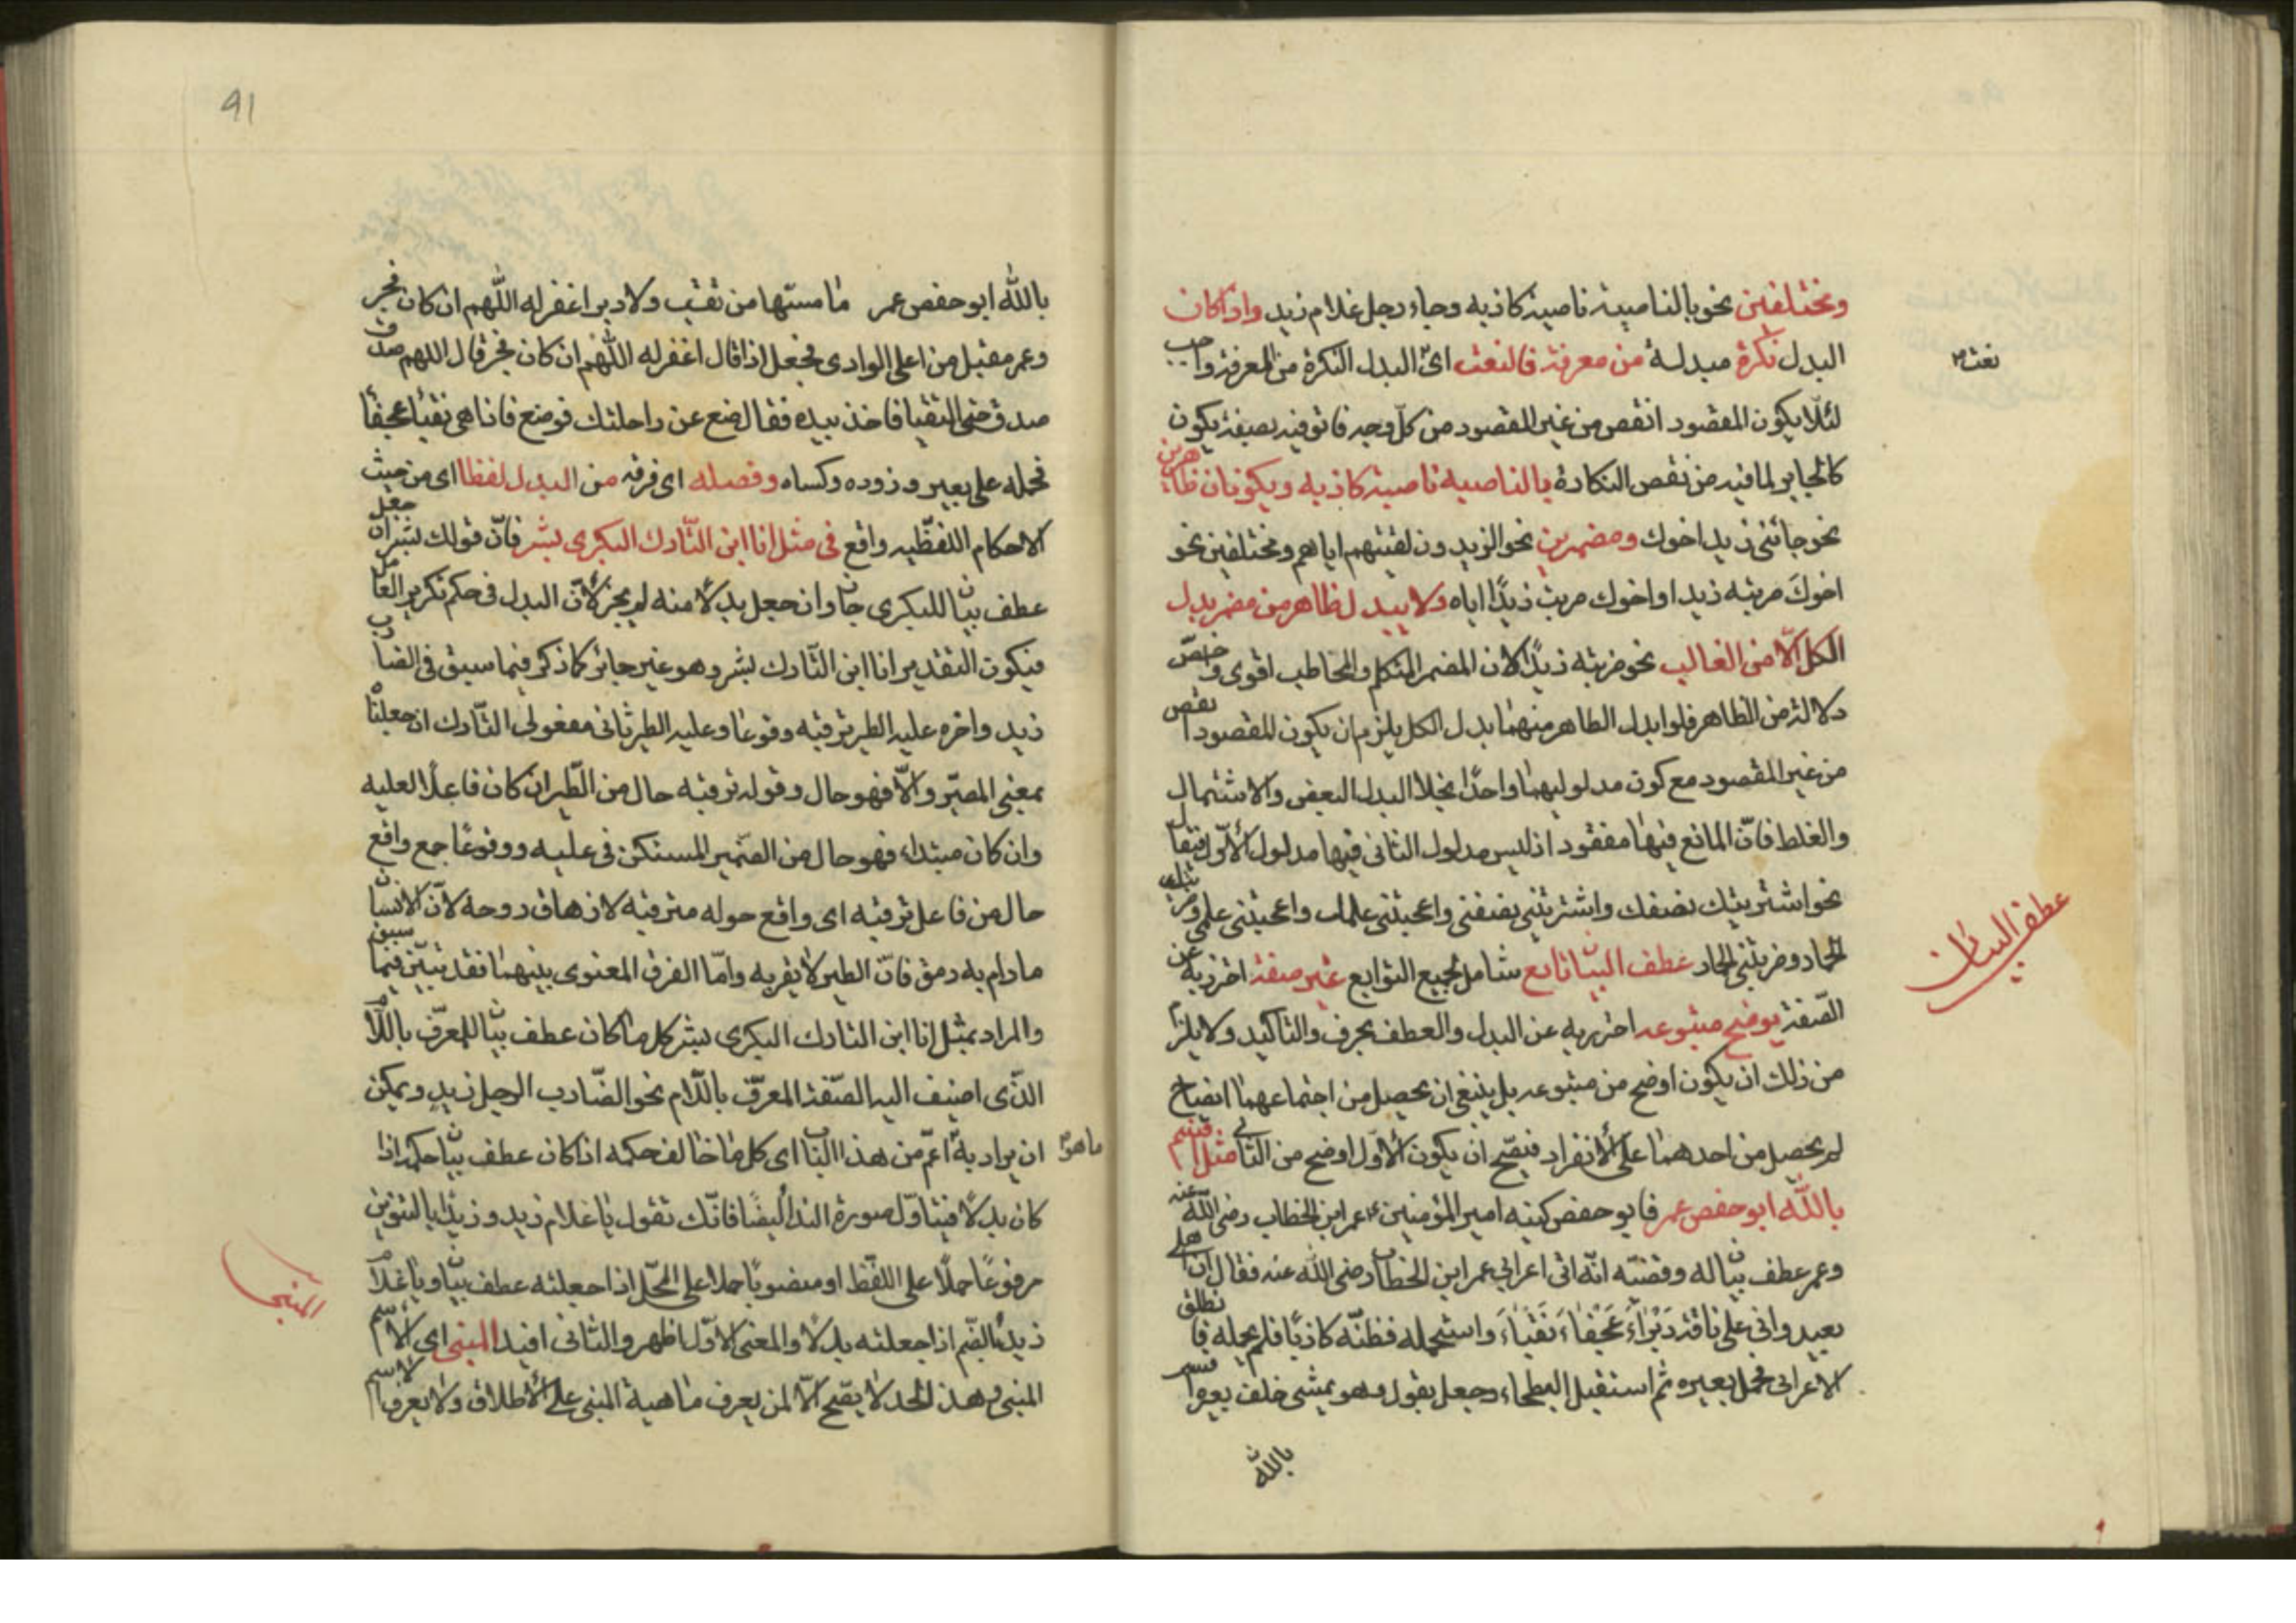 ومختلفين نحو بالناصية ناصية كاذبة وجاء رجل غلام زيد واذا كان
البدل نكرة مبدلة من معرفة فالنعت اى البدل النكرة من المعرفة واجب
نعت
لئلا يكون المقصود انقص من غير المقصود من كل وجه فاتوفيه بصفة يكون
كالجابر لما فيه من نقص النكارة بالناصية ناصية كاذبة ويكونان ظاهرين
نحو جائنى زيد اخوك ومضمرين نحو الزيدون لقيتهم اياهم ومختلفين نحو
اخوك ضربته زيدا واخوك ضربت زيدًا اياه ولا يبدل ظاهر من مضمر بدل
الكل الا من الغائب نحو ضربته زيدًا لان المضمر المتكلم والمخاطب اقوى واخص
دلالة من الظاهر فلو ابدل الظاهر منهما بدل الكل يلزم ان يكون المقصود انقص
من غير المقصود مع كون مدلوليهما واحدًا بخلا البدل البعض والاشتمال
والغلط فان المانع فيها مفقود اذ ليس مدلول الثانى فيها مدلول الاول فيقال
نحو اشتريتك نصفك واشتريتنى نصفى واعجبتنى علمك واعجبتنى علمى وضربتك
الحمار وضربتنى الحمار عطف البيان تابع شامل لجميع التوابع غير صفة احترز به عن
عطف البيان
الصفة يوضح متبوعه احترز به عن البدل والعطف بحرف والتاكيد ولا يلزم
من ذلك ان يكون اوضح من متبوعه بل ينبغى ان يحصل من اجتماعهما ايضاح
لم يحصل من احدهما على الانفراد فيصح ان يكون الاول اوضح من الثانى مثل اقسم
بالله ابو حفص عمر فابو حفص كنيه امير المؤمنين عمر ابن الخطاب رضى الله عنه
وعمر عطف بيان له وقصته انه اتى اعرابى عمر ابن الخطاب رضى الله عنه فقال ان اهلى
بعيد وانى على ناقة دبراء عجفاء نقباء واستحمله فظنه كاذبًا فلم يحمله فانطلق
الاعرابى فحمل بعيره ثم استقبل البطحاء وجعل يقول وهو يمشى خلف بعيره اقسم
بالله
91
بالله ابو حفص عمر ما مسها من نقب ولا دبر اغفر له اللهم ان كان فجر
وعمر مقبل من اعلى الوادى فجعل اذا قال اغفر له اللهم ان كان فجر قال اللهم صدق
صدق حتى التقيا فاخذ بيده فقال ضع عن راحلتك فوضع فاذا هى نقباء عجفاء
فحمله على بعير وزوده وكساه وفصله اى فرقه من البدل لفظا اى من حيث
الاحكام اللفظيه واقع فى مثل انا ابن التارك البكرى بشر فان قولك بشر ان جعل
عطف بيان للبكرى جاز وان جعل بدلًا منه لم يجز لان البدل فى حكم تكرير العامل
فيكون التقدير انا ابن التارك بشر وهو غير جائز كما ذكر فيما سبق فى الضارب
زيد واخره عليه الطير ترقبه وقوعا وعليه الطير ثانى مفعولى التارك ان جعلناه
بمعنى المصير والا فهو حال وقوله ترقبه حال من الطير ان كان فاعلا لعليه
وان كان مبتداء فهو حال من الضمير المستكن فى عليه ووقوعًا جمع واقع
حال من فاعل ترقبه اى واقع حوله مترقبه لانزهاق روحه لان الانسان
مادام به رمق فان الطير لا يقربه واما الفرق المعنوى بينهما فقد تبين فيما سبق
والمراد بمثل انا ابن التارك البكرى بشر كل ما كان عطف بيان للمعرف باللام
الذى اضيف اليه الصفة المعرف باللام نحو الضارب الرجل زيد ويمكن
ان يراد به اعم من هذا الباب اى كل ما خالف حكمه اذا كان عطف بيان حكمه اذا
ما هو
كان بدلًا فيتناول صورة الندا ايضًا فانك تقول يا غلام زيد وزيدًا بالتنوين
مرفوعًا حملًا على اللفظ او منصوبًا حملا على المحل اذا جعلته عطف بيان ويا غلام
المبنى
زيد بالضم اذا جعلته بدلًا والمعنى الاول اظهر والثانى افيد المبنى اى الاسم
المبنى وهذا الحد لا يصح الا لمن يعرف ماهية المبنى على الاطلاق ولا يعرف الاسم